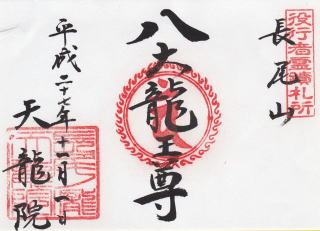 役行者霊蹟札所
長尾山
八大龍王尊
平成二十七年十一月一日
天龍院